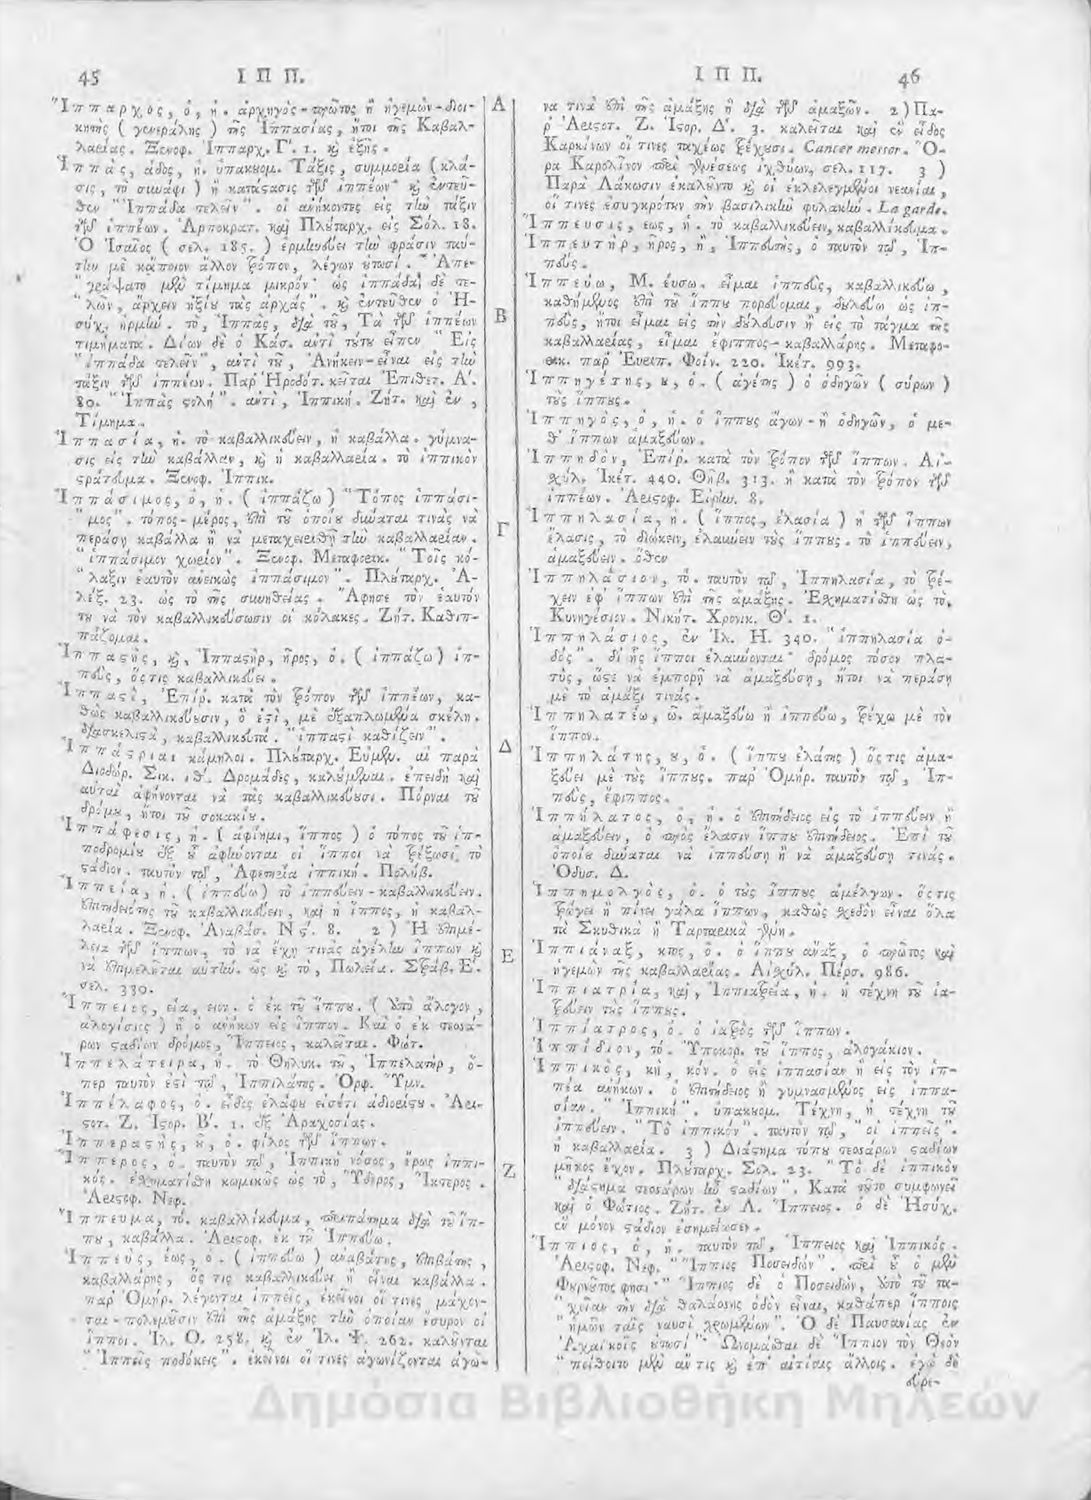 45 Ι Π Π.
Ἵππαρχος, ὁ, ἡ. ἀρχηγὸς - πρῶτος ἢ ἡγεμὼν - διοι-
κητὴς ( γενεράλης ) τῆς Ἱππασίας, ἤτοι τῆς Καβαλ-
λαρίας. Ξενοφ. Ἱππαρχ. Γ'. 1. καὶ ἑξῆς.
Ἱππὰς, άδος, ἡ. ὑπακουομ. Τάξις, συμμορία ( κλά-
σις, τὸ σινάφι ) ἢ κατάστασις τῶν ἱππέων· καὶ ἐντεῦ-
θεν "Ἱππάδα τελεῖν". οἱ ἀνήκοντες εἰς τὴν τάξιν
τῶν ἱππέων. Ἁρποκρατ. καὶ Πλούταρχ. εἰς Σόλ. 18.
Ὁ Ἰσαῖος ( σελ. 185. ) ἑρμηνεύει τὴν φράσιν ταύ-
την μὲ κάποιον ἄλλον τρόπον, λέγων οὑτωσί. "Ἀπε-
"γράψατο μὲν τίμημα μικρόν· ὡς ἱππάδα δὲ τε-
"λῶν, ἄρχειν ἠξίου τὰς ἀρχάς". καὶ ἐντεῦθεν ὁ Ἡ-
σύχ. ἡρμήν. τὸ, Ἱππὰς, διὰ τοῦ, Τὰ τῶν ἱππέων
τιμήματα. Δίων δὲ ὁ Κάσ. ἀντὶ τούτου εἶπεν "Εἰς
"ἱππάδα τελεῖν", ἀντὶ τοῦ, Ἀνήκειν - εἶναι εἰς τὴν
τάξιν τῶν ἱππέων. Παρ' Ἡροδότ. κεῖται Ἐπιθετ. Α'.
80. "Ἱππὰς στολή". ἀντὶ, Ἱππική. Ζήτ. καὶ ἐν,
Τίμημα.
Ἱππασία, ἡ. τὸ καβαλλικεύειν, ἡ καβάλλα. γύμνα-
σις εἰς τὴν καβάλλαν, καὶ ἡ καβαλλαρία. τὸ ἱππικὸν
στράτευμα. Ξενοφ. Ἱππικ.
Ἱππάσιμος, ὁ, ἡ. ( ἱππάζω ) "Τόπος ἱππάσι-
"μος". τόπος - μέρος, ἐπὶ τοῦ ὁποίου δύναται τινὰς νὰ
περάσῃ καβάλλα ἢ νὰ μεταχειρισθῇ τὴν καβαλλαρίαν.
"ἱππάσιμον χωρίον". Ξενοφ. Μεταφορικ. "Τοῖς κό-
"λαξιν ἑαυτὸν ἀνεικὼς ἱππάσιμον". Πλούταρχ. Ἀ-
λέξ. 23. ὡς τὸ τῆς συνηθείας. "Ἄφησε τὸν ἑαυτόν
του νὰ τὸν καβαλλικεύσωσιν οἱ κόλακες. Ζήτ. Καθιπ-
πάζομαι.
Ἱππαστὴς, καὶ, Ἱππαστὴρ, ῆρος, ὁ. ( ἱππάζω ) ἱπ-
πεὺς, ὅστις καβαλλικεύει.
Ἱππαστὶ, Ἐπίρ. κατὰ τὸν τρόπον τῶν ἱππέων, κα-
θὼς καβαλλικεύουσιν, ὅ ἐστι, μὲ ἐξαπλωμένα σκέλη.
διασκελιστὰ, καβαλλικευτά. "ἱππαστὶ καθίζειν".
Ἱππάστριαι κάμηλοι. Πλούταρχ. Εὐμέν. αἱ παρὰ
Διοδώρ. Σικ. ιθ'. Δρομάδες, καλούμεναι. ἐπειδὴ καὶ
αὐταὶ ἀφήνονται νὰ τὰς καβαλλικεύουσι. Πόρναι τοῦ
δρόμου, ἤτοι τοῦ σοκακίου.
Ἱππάφεσις, ἡ. ( ἀφίημι, ἵππος ) ὁ τόπος τοῦ ἱπ-
ποδρομίου ἐξ οὗ ἀφήνονται οἱ ἵπποι νὰ τρέξωσι τὸ
στάδιον. ταυτὸν τῷ, Ἀφετηρία ἱππική. Πολύβ.
Ἱππεία, ἡ. ( ἱππεύω ) τὸ ἱππεύειν - καβαλλικεύειν.
ἐπιτηδειότης τοῦ καβαλλικεύειν, καὶ ἡ ἵππος, ἡ καβαλ-
λαρία. Ξενοφ. Ἀναβάσ. Νς'. 8. 2 ) Ἡ ἐπιμέ-
λεια τῶν ἵππων, τὸ νὰ ἔχῃ τινὰς ἀγέλην ἵππων καὶ
νὰ ἐπιμελῆται αὐτήν. ὡς καὶ τὸ, Πωλεία. Στράβ. Ε'.
σελ. 330.
Ἵππειος, εία, ειον. ὁ ἐκ τοῦ ἵππου. ( ἀπὸ ἄλογον,
ἀλογίσιος ) ἢ ὁ ἀνήκων εἰς ἵππον. Καὶ ὁ ἐκ τεσσά-
ρων σταδίων δρόμος, Ἵππειος, καλεῖται. Φώτ.
Ἱππελάτειρα, ἡ. τὸ Θηλυκ. τοῦ, Ἱππελατὴρ, ὅ-
περ ταυτόν ἐστι τῷ, Ἱππηλάτης. Ὀρφ. Ὕμν.
Ἱππέλαφος, ὁ. εἶδος ἐλάφου εἰσέτι ἀδιορίστου. Ἀρι-
στοτ. Ζ. Ἱστορ. Β'. 1. ἐξ Ἀραχοσίας.
Ἱππεραστὴς, οῦ, ὁ. φίλος τῶν ἵππων.
Ἵππερος, ὁ. ταυτὸν τῷ, Ἱππικὴ νόσος, ἔρως ἱππι-
κός. ἐσχηματίσθη κωμικῶς ὡς τὸ, Ὕδερος, Ἴκτερος.
Ἀριστοφ. Νεφ.
Ἵππευμα, τό. καβαλλίκευμα, περιπάτημα διὰ τοῦ ἵπ-
που, καβάλλα. Ἀριστοφ. ἐκ τοῦ Ἱππεύω.
Ἱππεὺς, έως, ὁ. ( ἱππεύω ) ἀναβάτης, ἐπιβάτης,
καβαλλάρης, ὅς τις καβαλλικεύει ἢ εἶναι καβάλλα.
παρ' Ὁμήρ. λέγονται ἱππεῖς, ἐκεῖνοι οἵ τινες μάχον-
ται - πολεμοῦσιν ἐπὶ τῆς ἁμάξης τὴν ὁποίαν ἔσυρον οἱ
ἵπποι. Ἰλ. Ο. 258. καὶ ἐν Ἰλ. Ψ. 262. καλοῦνται
"Ἱππεῖς ποδώκεις". ἐκεῖνοι οἵ τινες ἀγωνίζονται ἀγῶ-
Α
Β
Γ
Δ
Ε
Ζ
Ι Π Π. 46
να τινὰ ἐπὶ τῆς ἁμάξης ἢ διὰ τῶν ἁμαξῶν. 2 ) Πα-
ρ' Ἀριστοτ. Ζ. Ἱστορ. Δ'. 3. καλεῖται καὶ ἓν εἶδος
Καρκίνων οἵ τινες ταχέως τρέχουσι. Cancer mersor. Ὅ-
ρα Καρολῖνον περὶ γενέσεως ἰχθύων, σελ. 117. 3 )
Παρὰ Λάκωσιν ἐκαλοῦντο καὶ οἱ ἐκλελεγμένοι νεανίαι,
οἵ τινες ἐσυγκρότουν τὴν βασιλικὴν φυλακήν. La garde.
Ἵππευσις, εως, ἡ. τὸ καβαλλικεύειν, καβαλλίκευμα.
Ἱππευτὴρ, ῆρος, ἢ, Ἱππευτὴς, ὁ ταυτὸν τῷ, Ἱπ-
πεύς.
Ἱππεύω, Μ. εύσω. εἶμαι ἱππεὺς, καβαλλικεύω,
καθήμενος ἐπὶ τοῦ ἵππου πορεύομαι, δουλεύω ὡς ἱπ-
πεὺς, ἤτοι εἶμαι εἰς τὴν δούλευσιν ἢ εἰς τὸ τάγμα τῆς
καβαλλαρίας, εἶμαι ἔφιππος - καβαλλάρης. Μεταφο-
ρικ. παρ' Εὐριπ. Φοίν. 220. Ἱκέτ. 993.
Ἱππηγέτης, ου, ὁ. ( ἀγέτης ) ὁ ὁδηγῶν ( σύρων )
τοὺς ἵππους.
Ἱππηγὸς, ὁ, ἡ. ὁ ἵππους ἄγων - ἢ ὁδηγῶν, ὁ με-
θ' ἵππων ἁμαξεύων.
Ἱππηδὸν, Ἐπίρ. κατὰ τὸν τρόπον τῶν ἵππων. Αἰ-
σχύλ. Ἱκέτ. 440. Θηβ. 313. ἢ κατὰ τὸν τρόπον τῶν
ἱππέων. Ἀριστοφ. Εἰρήν. 8.
Ἱππηλασία, ἡ. ( ἵππος, ἐλασία ) ἡ τῶν ἵππων
ἔλασις, τὸ διώκειν, ἐλαύνειν τοὺς ἵππους. τὸ ἱππεύειν,
ἁμαξεύειν. ὅθεν
Ἱππηλάσιον, τό. ταυτὸν τῷ, Ἱππηλασία, τὸ τρέ-
χειν ἐφ' ἵππων ἐπὶ τῆς ἁμάξης. Ἐσχηματίσθη ὡς τὸ,
Κυνηγέσιον. Νικήτ. Χρονικ. Θ'. 1.
Ἱππηλάσιος, ἐν Ἰλ. Η. 340. "ἱππηλασία ὁ-
δός". δι' ἧς ἵπποι ἐλαύνονται· δρόμος τόσον πλα-
τὺς, ὥστε νὰ ἐμπορῇ νὰ ἁμαξεύσῃ, ἤτοι νὰ περάσῃ
μὲ τὸ ἁμάξι τινάς.
Ἱππηλατέω, ῶ. ἁμαξεύω ἢ ἱππεύω, τρέχω μὲ τὸν
ἵππον.
Ἱππηλάτης, ου, ὁ. ( ἵππου ἐλάτης ) ὅστις ἁμα-
ξεύει μὲ τοὺς ἵππους. παρ' Ὁμήρ. ταυτὸν τῷ, Ἱπ-
πεὺς, ἔφιππος.
Ἱππήλατος, ὁ, ἡ. ὁ ἐπιτήδειος εἰς τὸ ἱππεύειν ἢ
ἁμαξεύειν, ὁ πρὸς ἔλασιν ἵππου ἐπιτήδειος. Ἐπὶ τοῦ
ὁποίου δύναται νὰ ἱππεύσῃ ἢ νὰ ἁμαξεύσῃ τινάς.
Ὀδυσ. Δ.
Ἱππημολγὸς, ὁ. ὁ τοὺς ἵππους ἀμέλγων. ὅστις
τρώγει ἢ πίνει γάλα ἵππων, καθὼς σχεδὸν εἶναι ὅλα
τὰ Σκυθικὰ ἢ Ταρταρικὰ γένη.
Ἱππιάναξ, κτος, ὁ. ὁ ἵππου ἄναξ, ὁ πρῶτος καὶ
ἡγεμὼν τῆς καβαλλαρίας. Αἰσχύλ. Πέρσ. 986.
Ἱππιατρία, καὶ, Ἱππιατρεία, ἡ. ἡ τέχνη τοῦ ἰα-
τρεύειν τοὺς ἵππους.
Ἱππίατρος, ὁ. ὁ ἰατρὸς τῶν ἵππων.
Ἱππίδιον, τό. Ὑποκορ. τοῦ ἵππος, ἀλογάκιον.
Ἱππικὸς, κὴ, κόν. ὁ εἰς ἱππασίαν ἢ εἰς τὸν ἱπ-
πέα ἀνήκων. ὁ ἐπιτήδειος ἢ γυμνασμένος εἰς ἱππα-
σίαν. "Ἱππική". ὑπακουομ. Τέχνη, ἡ τέχνη τοῦ
ἱππεύειν. "Τὸ ἱππικόν". ταυτὸν τῷ, "οἱ ἱππεῖς".
ἡ καβαλλαρία. 3 ) Διάστημα τόπου τεσσάρων σταδίων
μῆκος ἔχον. Πλούταρχ. Σολ. 23. "Τὸ δὲ ἱππικὸν
"διάστημα τεσσάρων ἦν σταδίων". Κατὰ τοῦτο συμφωνεῖ
καὶ ὁ Φώτιος. Ζήτ. ἐν Λ. Ἵππειος. ὁ δὲ Ἡσύχ.
ἓν μόνον στάδιον ἐσημείωσεν.
Ἵππιος, ὁ, ἡ. ταυτὸν τῷ, Ἵππειος καὶ Ἱππικός.
Ἀριστοφ. Νεφ. "Ἵππιος Ποσειδῶν". περὶ οὗ ὁ μὲν
Φερνοῦτος φησί· "Ἵππιος δὲ ὁ Ποσειδῶν, ἀπὸ τοῦ τα-
"χεῖαν τὴν διὰ θαλάσσης ὁδὸν εἶναι, καθάπερ ἵπποις
"ἡμῶν ταῖς ναυσὶ χρωμένων". Ὁ δὲ Παυσανίας ἐν
Ἀχαϊκοῖς οὑτωσί· "Ὠνομάσθαι δὲ Ἵππιον τὸν Θεὸν
"πείθοιτο μὲν ἄν τις καὶ ἐπ' αἰτίαις ἄλλοις. ἐγὼ δὲ
εὑρε-
Δημόσια Βιβλιοθήκη Μηλεών